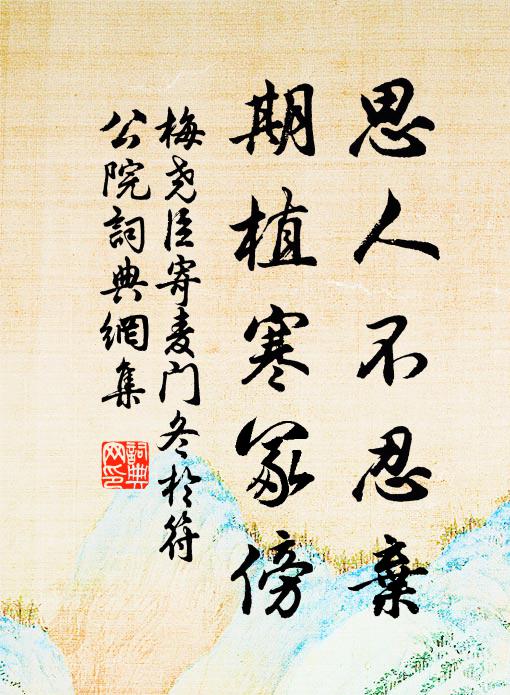 思人不忍棄
期植寒冢傍
梅堯臣寄麦门冬於符
公院詞典網集
詞典网印